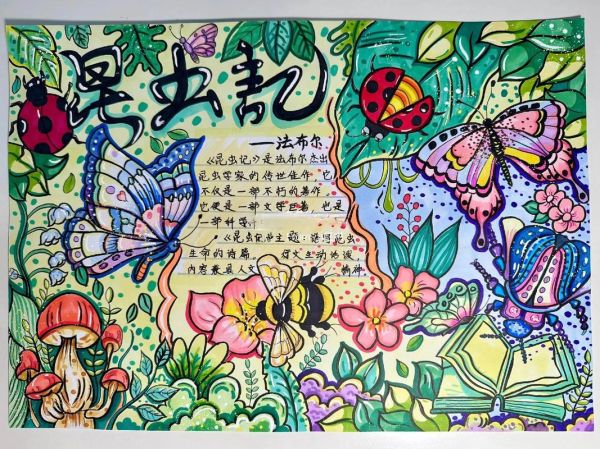 昆虫記
——法布尔
《昆虫记》是法布尔杰出
昆虫学家的传世佳作，它
不仅是一部不朽的著作
它便是一部文学巨著，也是
一部科学
《昆虫记》主题：谱写昆虫
生命的诗篇 文生动活泼
内容 具人文 精神